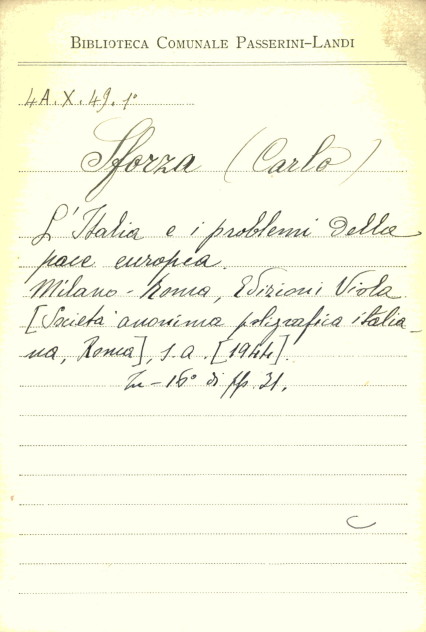 BIBLIOTECA COMUNALE PASSERINI-LANDI
4A.X.49.1°
Sforza (Carlo)
L'Italia e i problemi della
pace europea.
Milano - Roma, Edizioni Viola
[Società anonima poligrafica italia-
na, Roma], s.a. [1944].
In-16° di pp. 31.